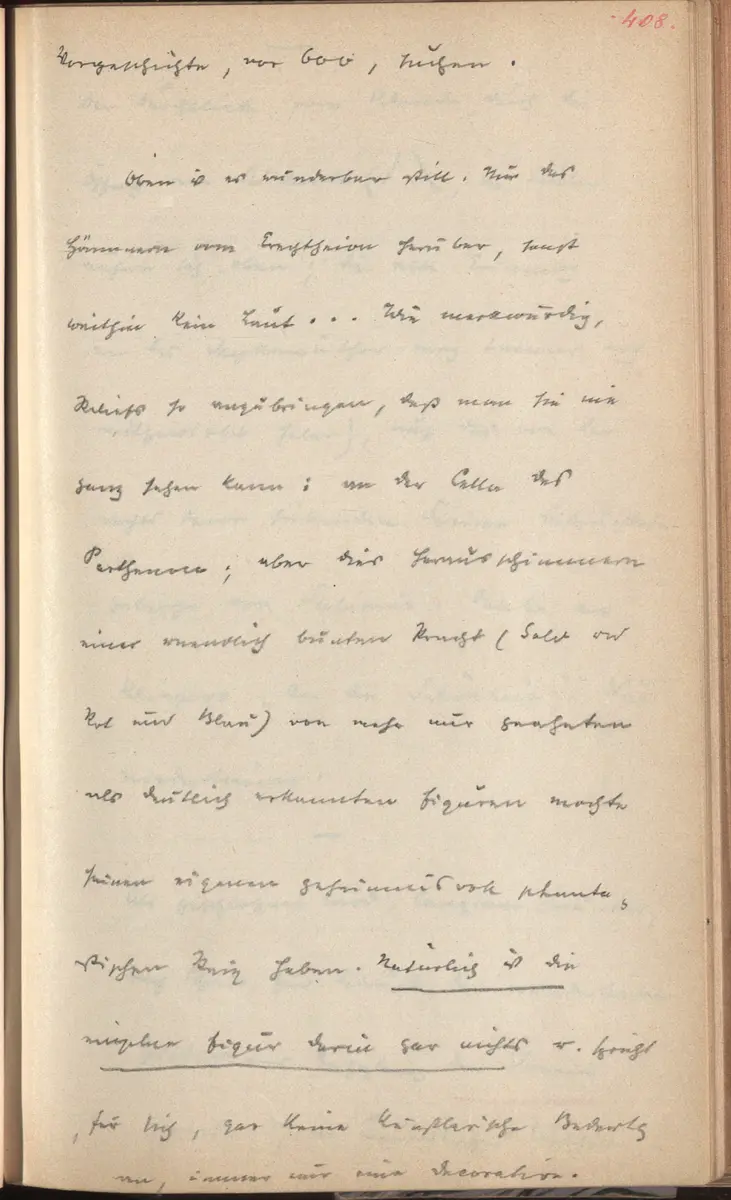 408.
Vorgeschichte, vor 600, suchen.
Oben is es wunderbar still. Nur das
Hämmern vom Erechtheion herüber, sonst
weithin kein Laut... Wie merkwürdig,
Reliefs so anzubringen, daß man sie nie
ganz sehen kann: an der Cella des
Parthenon; aber dies Herausschimmern
einer unendlich bunten Pracht (Gold und
Rot und Blau) von mehr nur geahnten
als deutlich erkannten Figuren mochte
seinen eigenen geheimnisvoll phanta-
stischen Reiz haben. Natürlich is die
einzelne Figur darin gar nichts u.
für sich, gar keine künstlerische Bedeutg
an, immer nur eine Decoration.